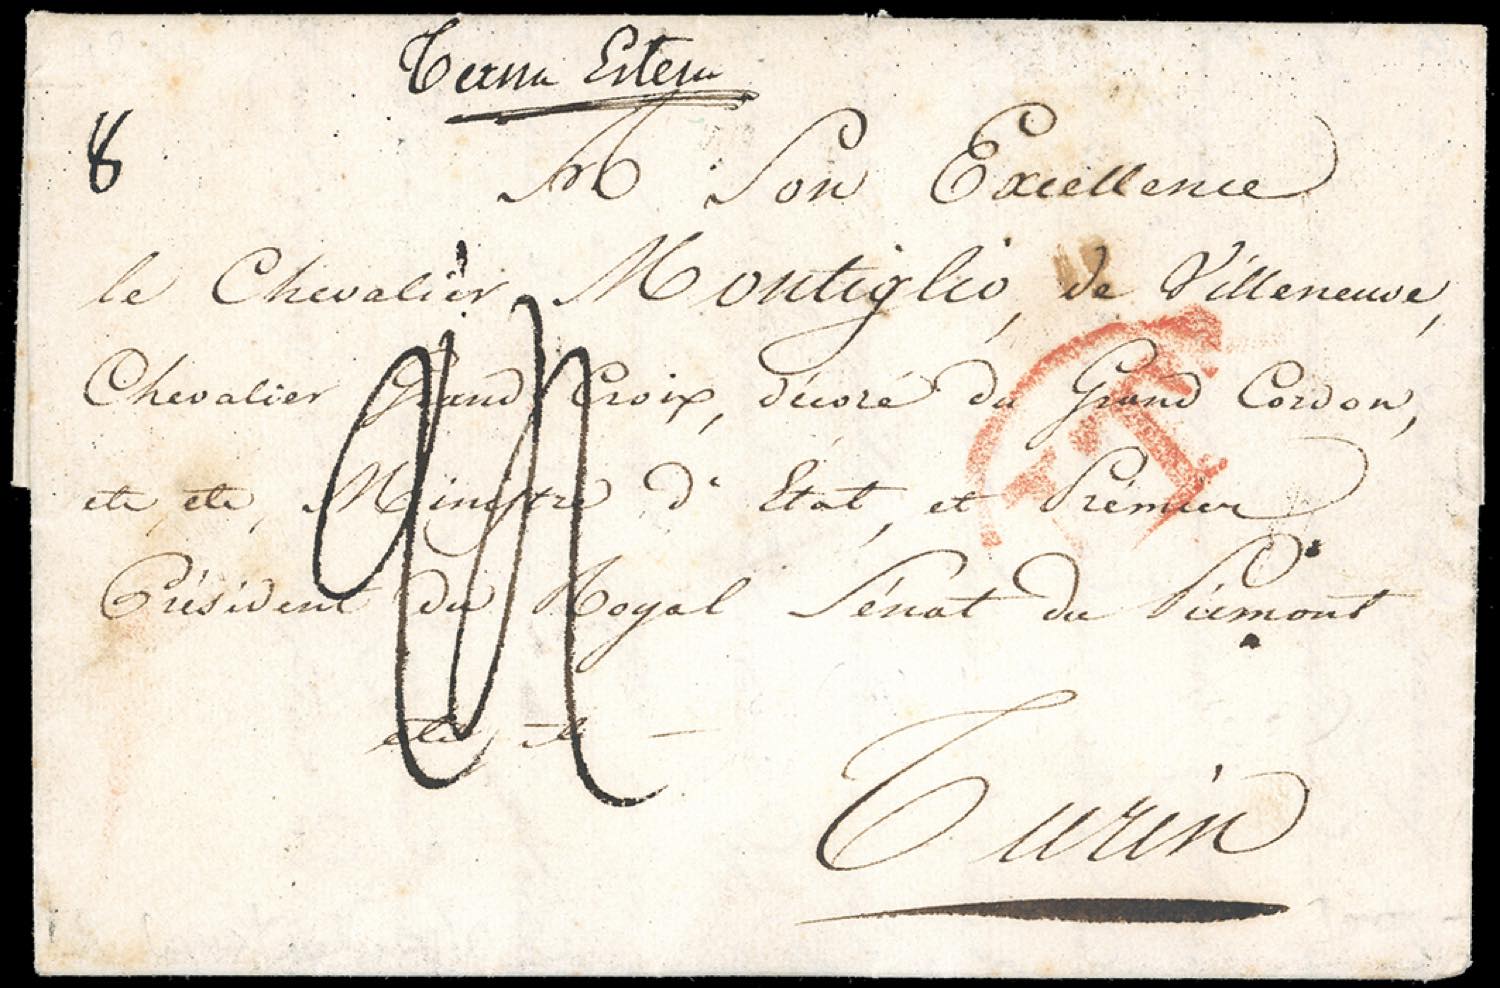 8
A Son Excellence
le Chevalier Montiglio, de Villeneuve,
Chevalier Grand Croix, décoré du Grand Cordon,
etc etc, Ministre d'Etat, et Prémier
Président du Royal Sénat du Piémont
etc, etc
Turin